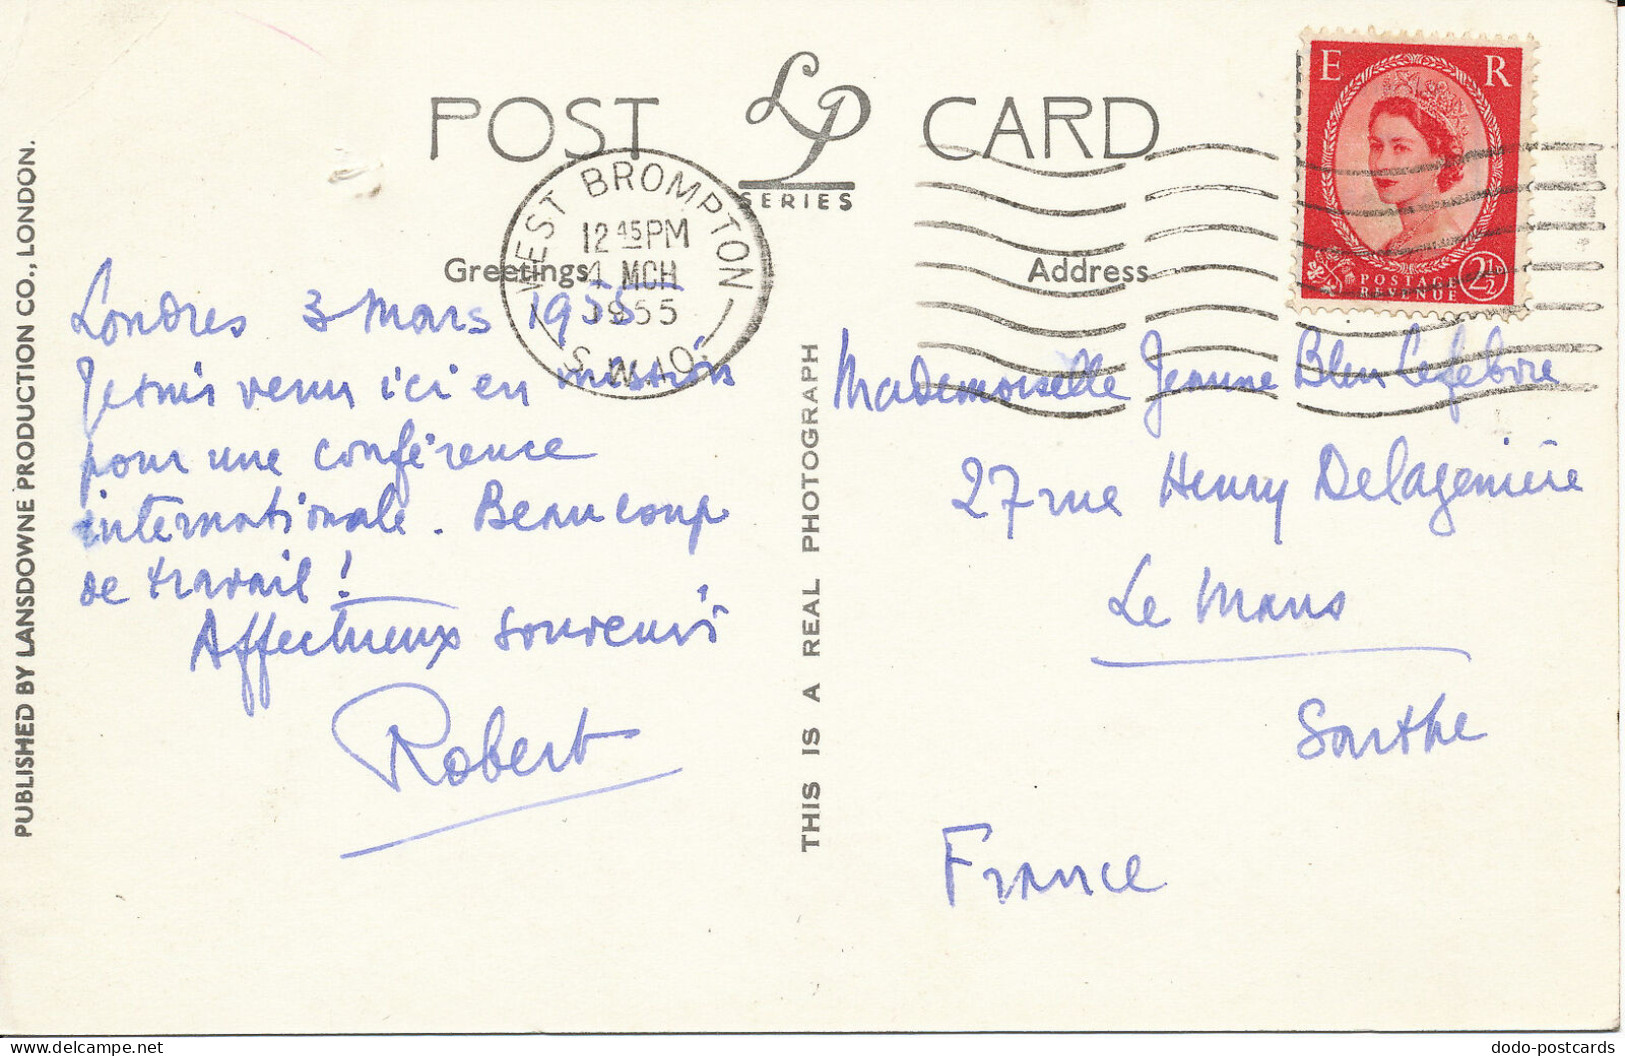 POST LP CARD
SERIES
WEST BROMPTON
12 45 PM
4 MCH
1955
S.W.10.
E R
POSTAGE
REVENUE
2½
Greetings
Address
Londres 3 Mars 1955
Je suis venu ici en mission
pour une conférence
internationale. Beaucoup
de travail !
Affectueux souvenirs
Robert
PUBLISHED BY LANSDOWNE PRODUCTION CO., LONDON.
THIS IS A REAL PHOTOGRAPH
Mademoiselle Jeanne Bleu Lefebvre
27 rue Henry Delagenière
Le Mans
Sarthe
France
www.delcampe.net
dodo-postcards